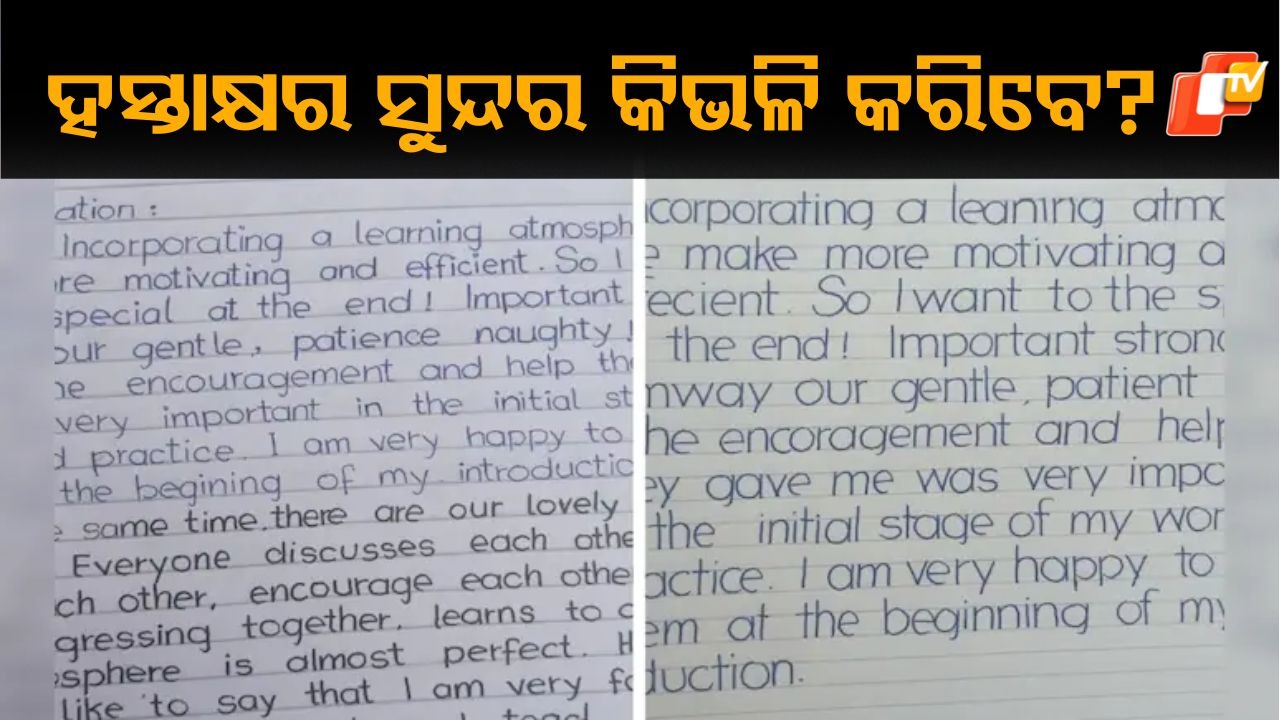 ହସ୍ତାକ୍ଷର ସୁନ୍ଦର କିଭଳି କରିବେ?
TV
ation :
Incorporating a learning atmosph
re motivating and efficient. So I
special at the end! Important
our gentle, patience naughty!
he encouragement and help the
very important in the initial st
d practice. I am very happy to
the begining of my introductio
e same time.there are our lovely
Everyone discusses each othe
ch other, encourage each othe
gressing together. learns to c
sphere is almost perfect. H
like to say that I am very fo
corporating a leaning atmo
e make more motivating a
ecient. So I want to the s
the end! Important strong
mway our gentle, patient
he encoragement and help
ey gave me was very impo
the initial stage of my wor
actice. I am very happy to
em at the beginning of my
duction.